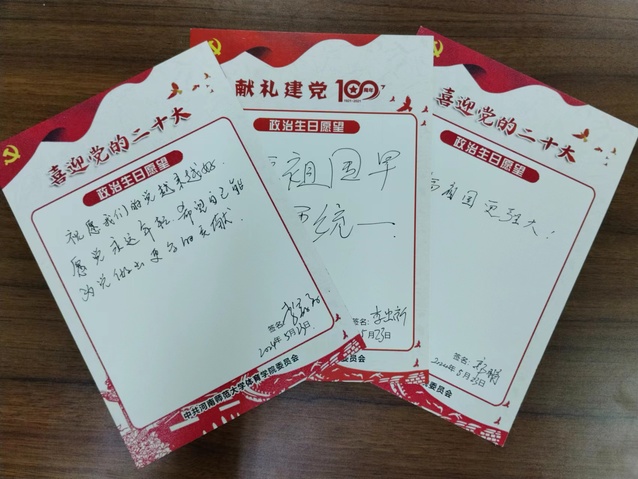 喜迎党的二十大
政治生日愿望
祝愿我们的党越来越好.
愿党永远年轻 希望自己能
为党做出更多的贡献.
签名:
2024年5月23日
中共河南师范大学体育学院委员会
献礼建党100周年
1921-2021
政治生日愿望
祖国早
统一.
签名: 李忠新
5月23日
委员会
喜迎党的二十大
政治生日愿望
祖国更强大!
签名:
2024年5月23日
委员会